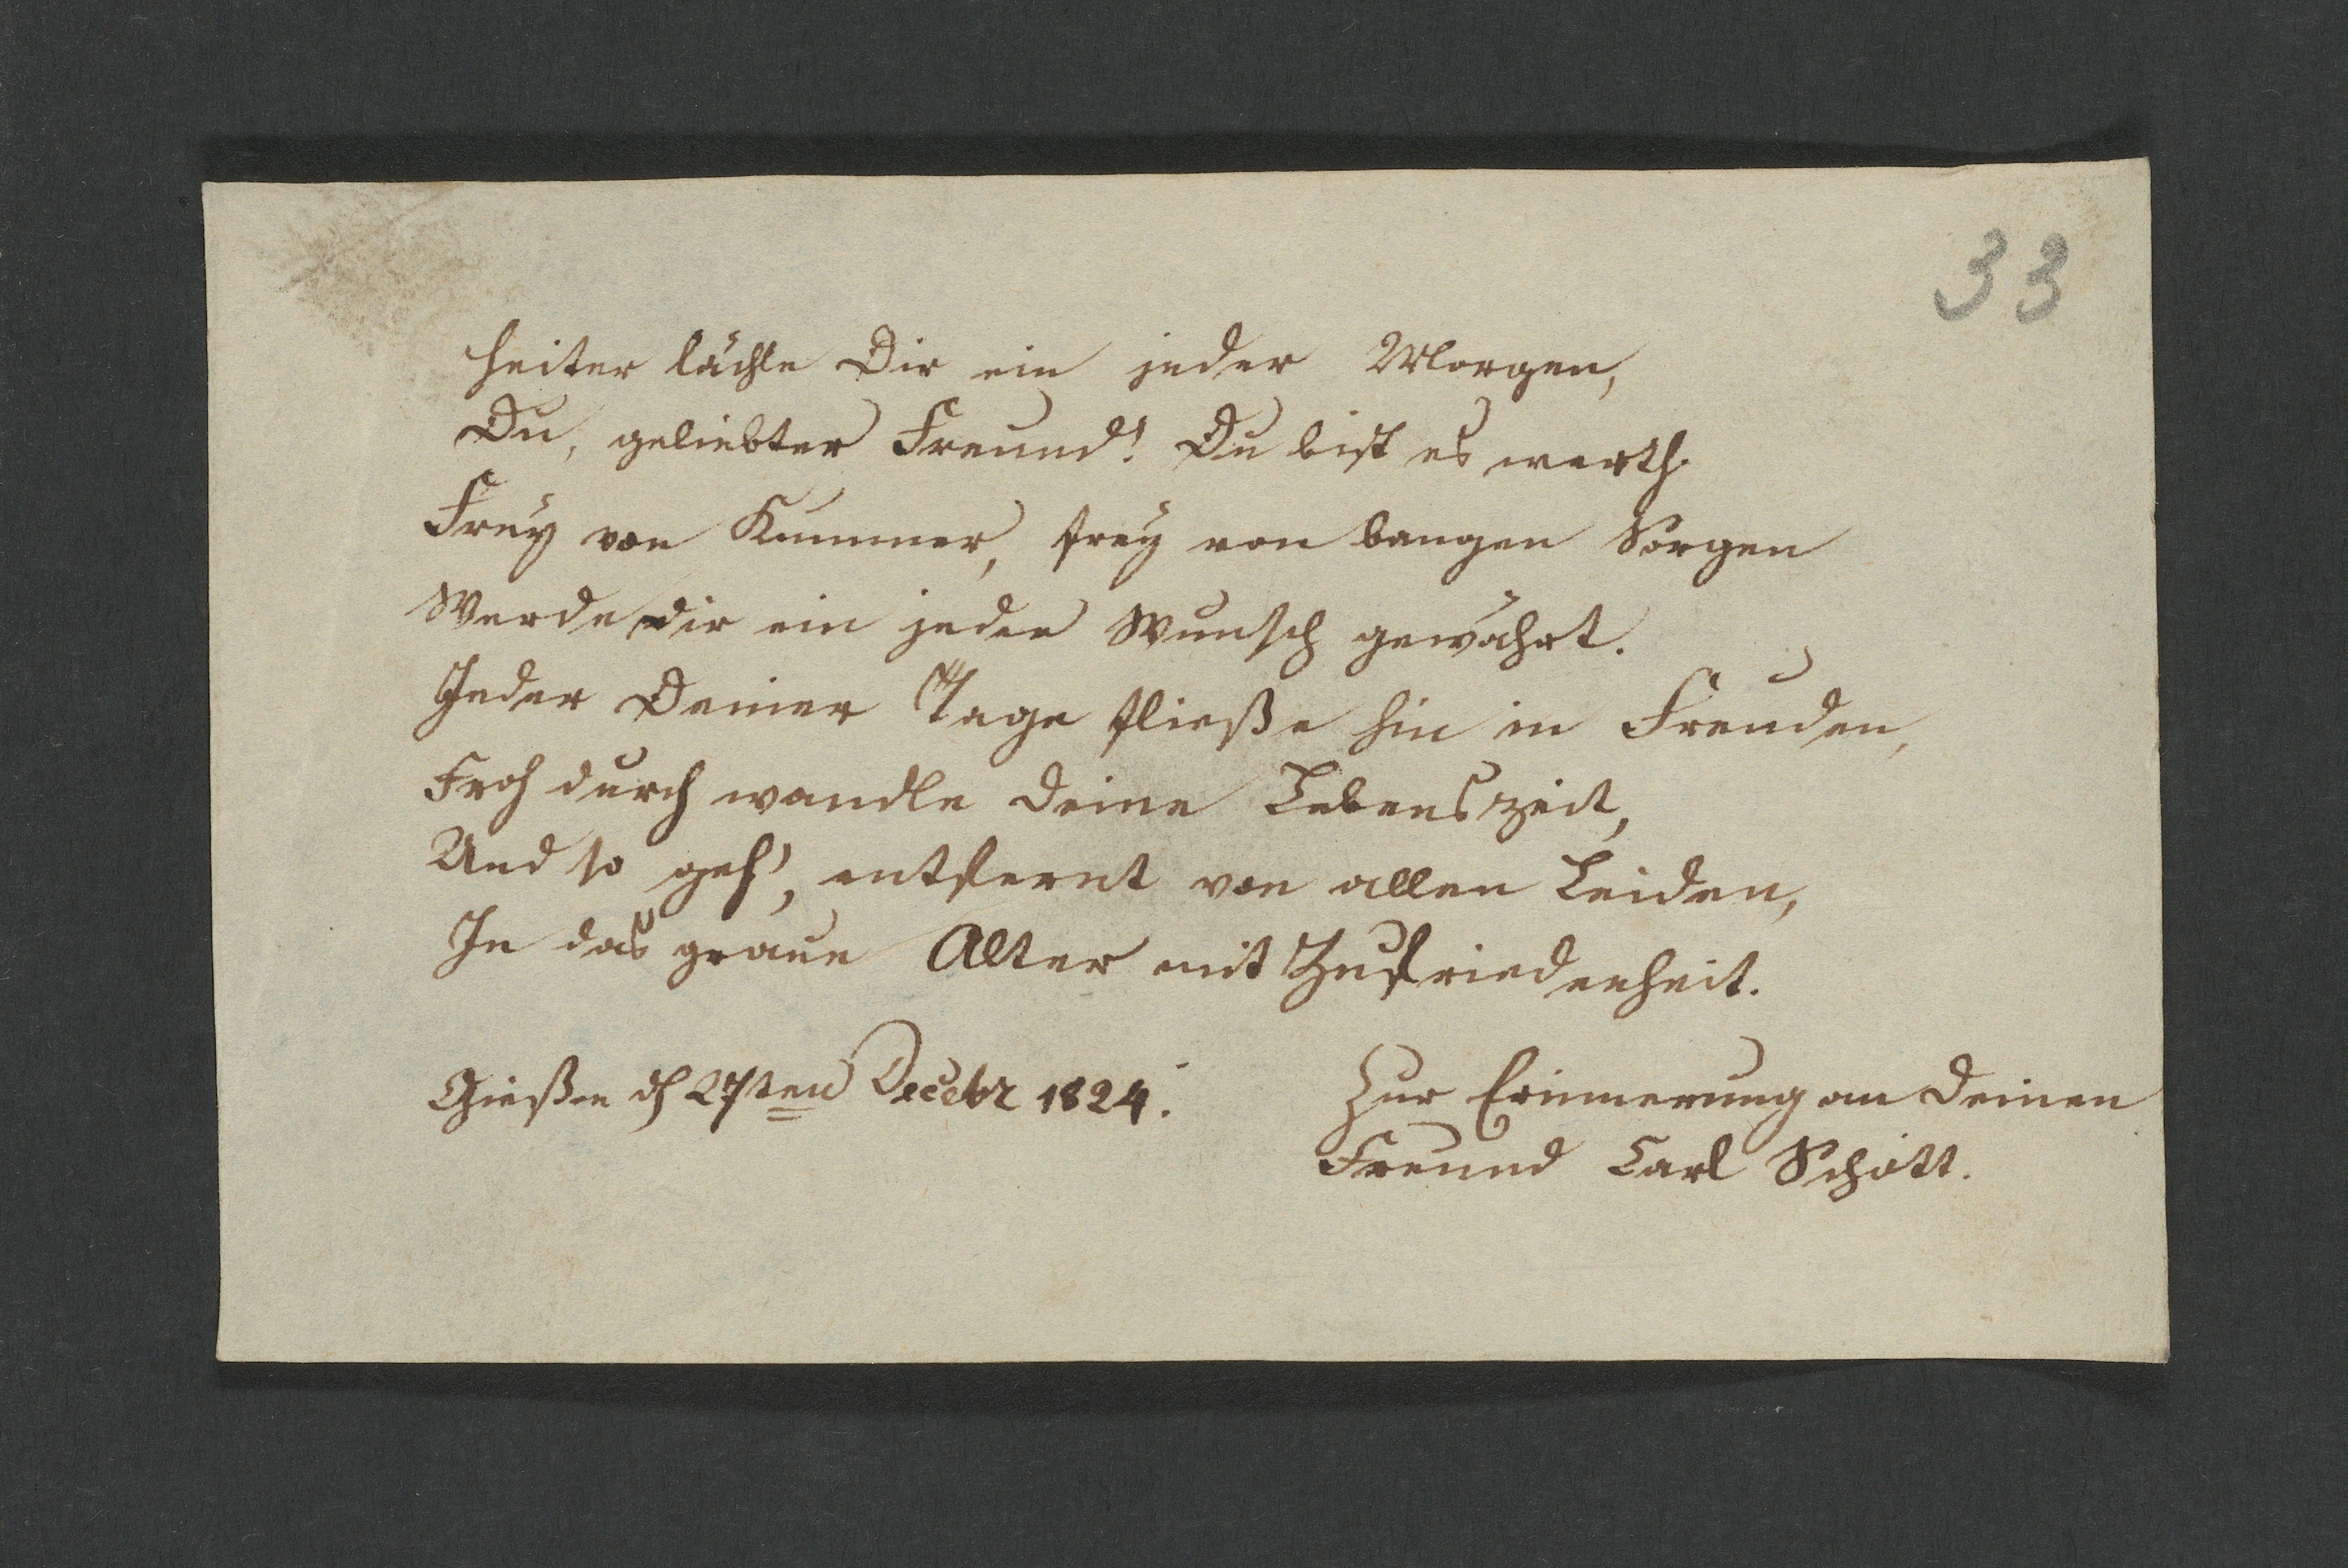 33
Heiter lächle Dir ein jeder Morgen,
Du, geliebter Freund! Du bist es werth.
Frey von Kummer, frey von bangen Sorgen
Werde dir ein jeder Wunsch gewährt.
Jeder Deiner Tage fließe hin in Freuden,
Froh durch wandle Deine Lebenszeit,
Und so geh', entfernt von allen Leiden,
In das graue Alter mit Zufriedenheit.
Gießen d 27ten Decebr 1824.
Zur Erinnerung an Deinen
Freund Carl Schott.